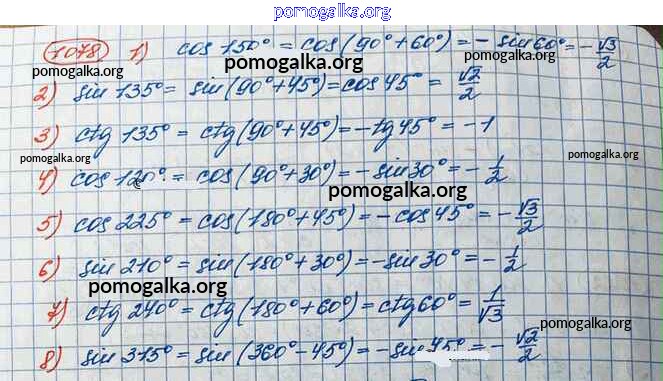 pomogalka.org
1078 1) cos 150° = cos(90° + 60°) = - sin 60° = - √3/2
pomogalka.org pomogalka.org
2) sin 135° = sin(90° + 45°) = cos 45° = √2/2
pomogalka.org
3) ctg 135° = ctg(90° + 45°) = - tg 45° = - 1
pomogalka.org pomogalka.org
4) cos 120° = cos(90° + 30°) = - sin 30° = - 1/2
pomogalka.org
5) cos 225° = cos(180° + 45°) = - cos 45° = - √3/2
6) sin 210° = sin(180° + 30°) = - sin 30° = - 1/2
pomogalka.org
7) ctg 240° = ctg(180° + 60°) = ctg 60° = 1/√3
pomogalka.org
8) sin 315° = sin(360° - 45°) = - sin 45° = - √2/2